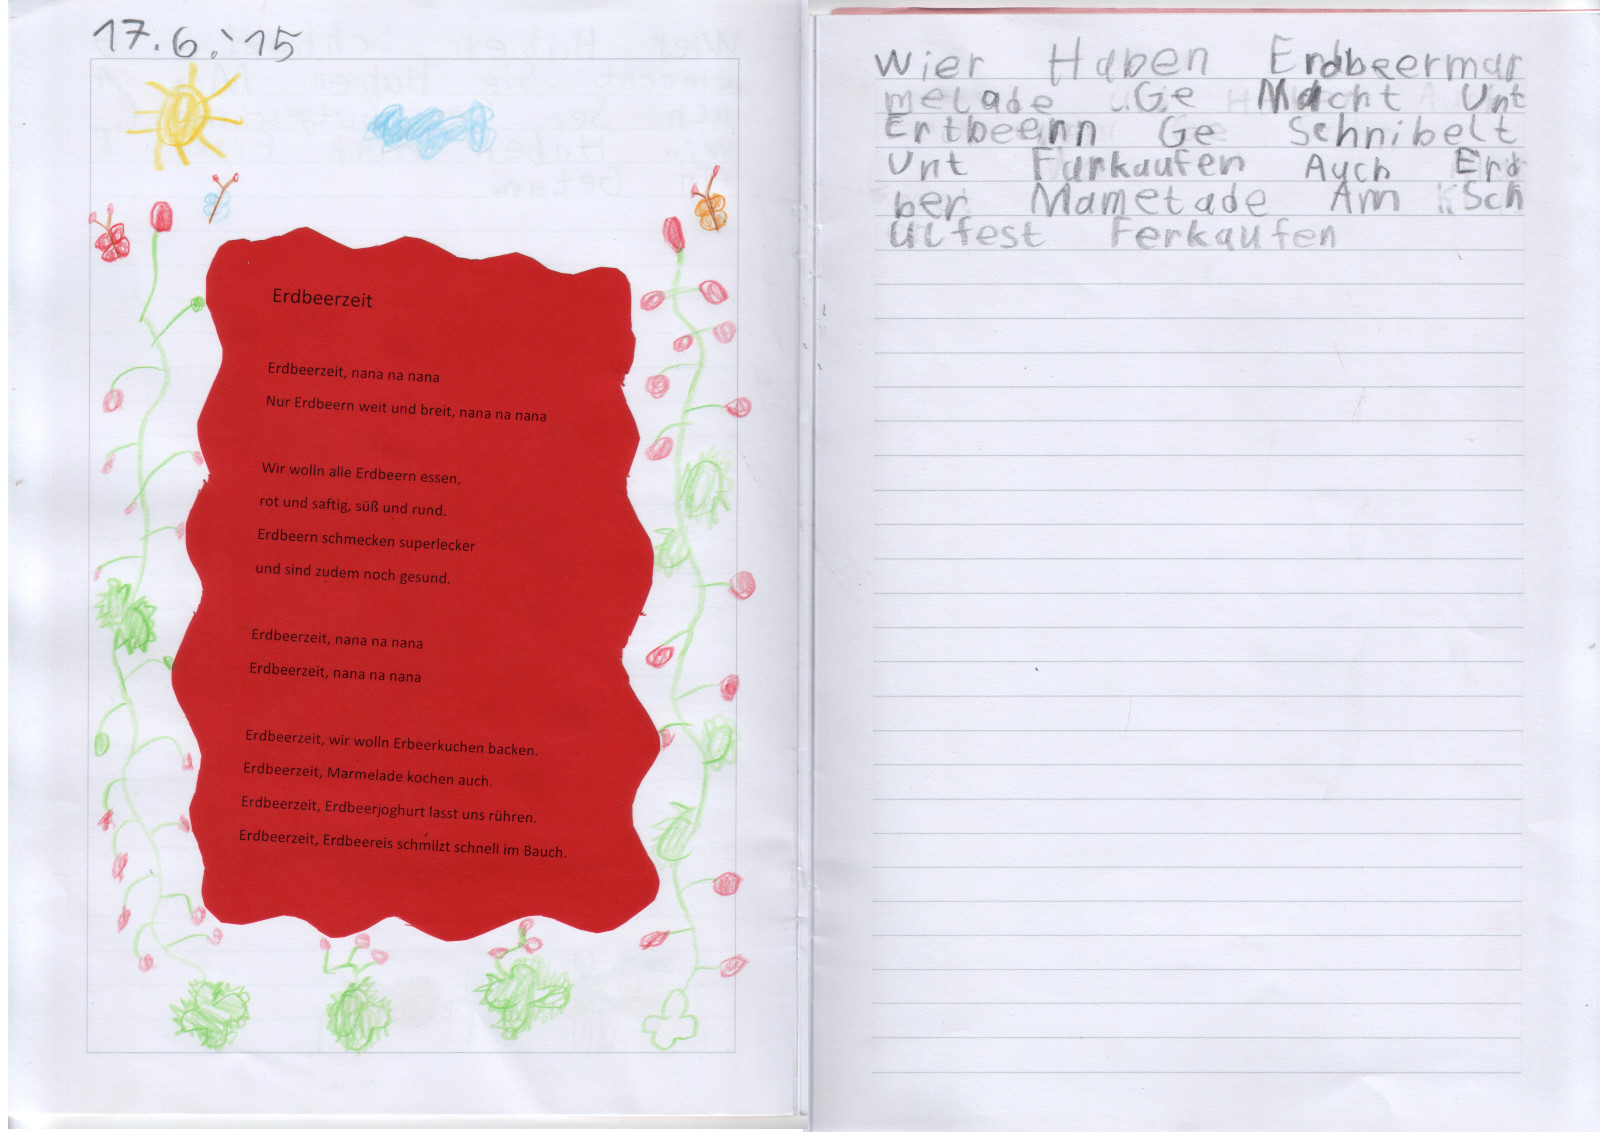 17.6.'15
Erdbeerzeit
Erdbeerzeit, nana na nana
Nur Erdbeern weit und breit, nana na nana
Wir wolln alle Erdbeern essen,
rot und saftig, süß und rund.
Erdbeern schmecken superlecker
und sind zudem noch gesund.
Erdbeerzeit, nana na nana
Erdbeerzeit, nana na nana
Erdbeerzeit, wir wolln Erbeerkuchen backen.
Erdbeerzeit, Marmelade kochen auch.
Erdbeerzeit, Erdbeerjoghurt lasst uns rühren.
Erdbeerzeit, Erdbeereis schmilzt schnell im Bauch.
Wier Haben Erdbeermar
melade Ge Macht Unt
Ertbeernn Ge Schnibelt
Unt Farkaufen Auch Erd
ber Mametade Am Sch
ulfest Ferkaufen